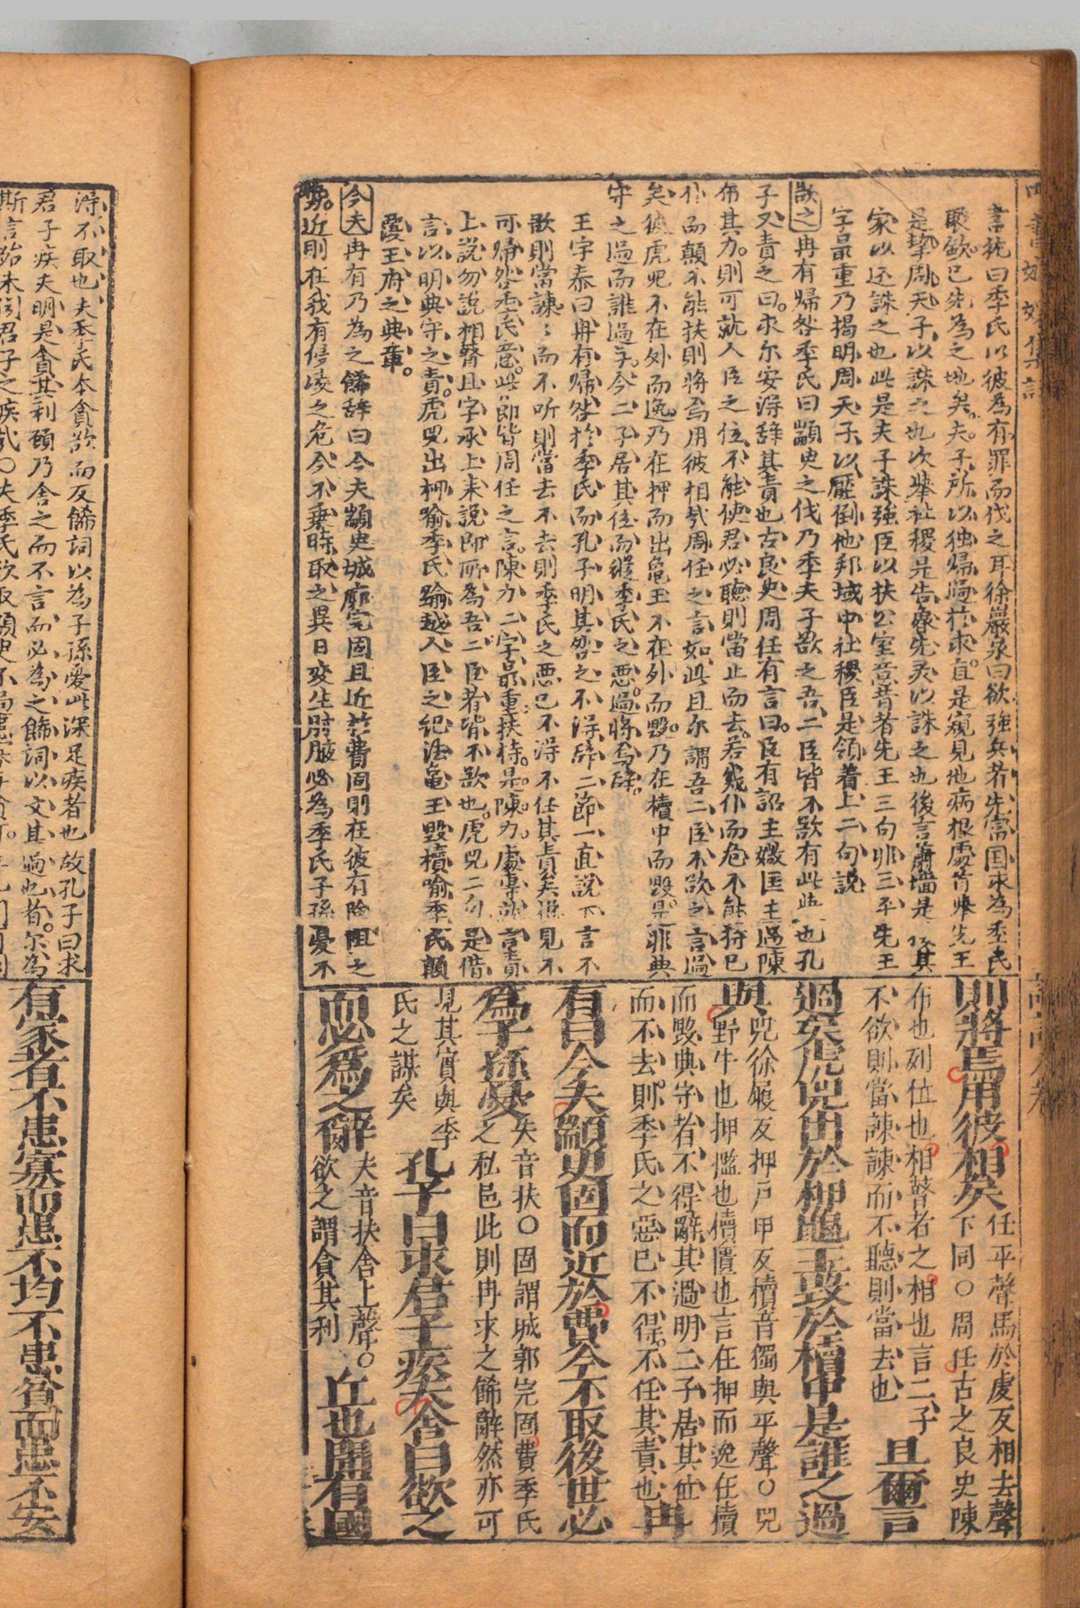 言抗曰季氏以彼為有罪而伐之耳徐巖泉曰欲強兵者先富国求為季氏
聚歛已先為之地矣夫子所以独歸過於求直是窺見他病根處首舉先王
是挈周天子以誅之也次舉社稷是告魯先灵以誅之也後言蕭墻是
家以还誅之也此是夫子誅強臣以扶公室意首者先王三句非三平先王
字最重乃揭明周天子以壓倒他邦域中社稷臣是領着上二句說
欲之冉有帰咎季氏曰顓臾之伐乃季夫子欲之吾二臣皆不欲有此也孔
子又責之曰求尔安得辞其責也古良史周任有言曰臣有
布其力則可就人臣之位不能使君必聽則當止而去若幾仆而危不能持已
仆而顛不能扶則將焉用彼相哉周任之言如此且尔謂吾二臣不欲之言過
矣彼虎兕不在外而逸乃在押而出龜玉不在外而毀乃在櫝中而毀是非典
守之過而誰過乎今二子居其位而縱季氏之惡過將焉辞
王宇泰曰冉有帰咎於季氏而孔子明其咎之不得辞二節一直說下言不
欲則當諫諫而不听則當去不去則季氏之惡已不得不任其責矣
可帰咎季氏意此即皆周任之言陳力二字最重扶持是陳力處專就言責
上說勿說相瞽且字承上来說即所為吾二臣者皆不欲也虎兕二句是借
言以明典守之責虎兕出柙喻季氏踰越人臣之紀法龜玉毀櫝喻季氏顛
覆王府之典章
今夫冉有乃為之餙辞曰今夫顓臾城廓完固且近於費固則在彼有險阻之
勢近則在我有侵凌之危今不乗時取之異日変生肘腋必為季氏子孫憂不
則將焉用彼相矣
任平聲焉於虔反相去聲
下同○周任古之良史陳
布也列位也相瞽者之相也言二子
不欲則當諫諫而不聽則當去也
且爾言
過矣虎兕出於柙龜玉毀於櫝中是誰之過
與
兕徐履反押戶甲反櫝音獨與平聲○兕
野牛也押檻也櫝匱也言在押而逸在櫝
而毀典守者不得辭其過明二子居其位
而不去則季氏之惡已不得不任其責也
冉
有曰今夫顓臾固而近於費今不取後世必
為子孫憂
夫音扶○固謂城郭完固費季氏
之私邑此則冉求之餙辭然亦可
見其實與季
氏之謀矣
孔子曰求君子疾夫舍曰欲之
而必為之辭
夫音扶舍上聲○
欲之謂貪其利
丘也聞有國
得不取也夫季氏本貪欲而反餙詞以為子孫憂此深足疾者也故孔子曰求
君子疾夫明是貪其利顧乃舍之而不言而必為之餙詞以文其過也者尔為
有家者不患寡而患不均不患貧而患不安